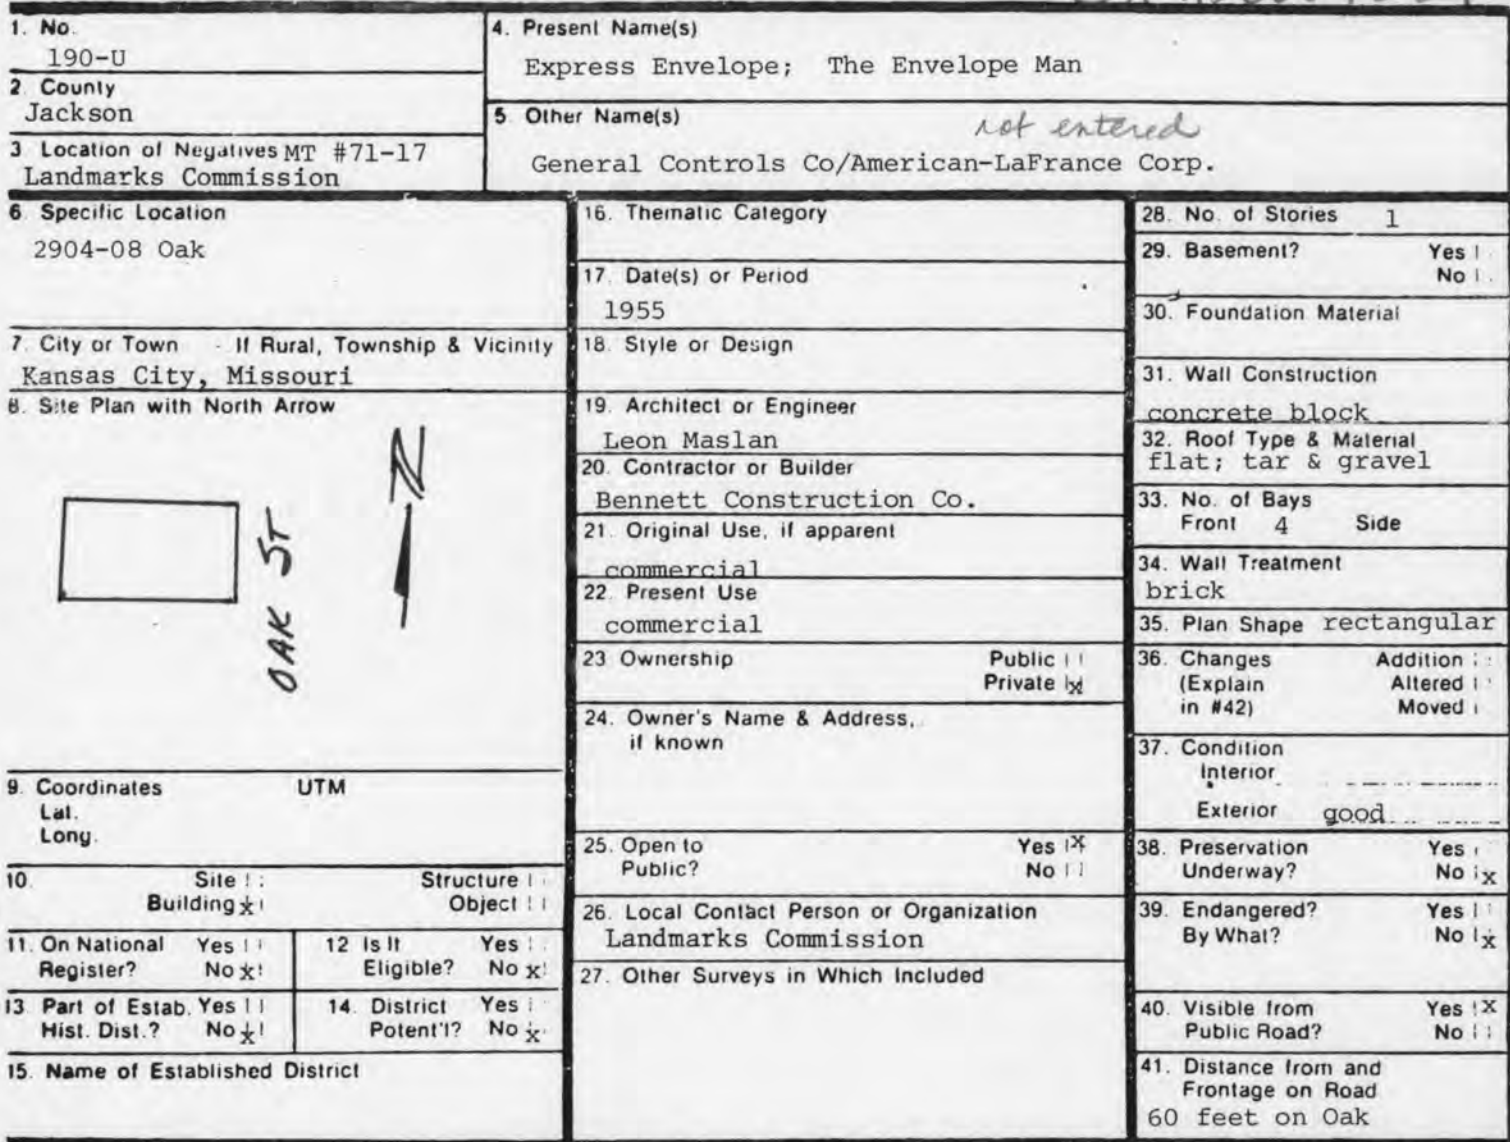 1. No.
190-U
2. County
Jackson
3 Location of Negatives MT #71-17
Landmarks Commission
4. Present Name(s)
Express Envelope; The Envelope Man
5 Other Name(s)
not entered
General Controls Co/American-LaFrance Corp.
6. Specific Location
2904-08 Oak
7. City or Town If Rural, Township & Vicinity
Kansas City, Missouri
8. Site Plan with North Arrow
N
OAK ST
9. Coordinates UTM
Lat.
Long.
10. Site Structure
Building x Object
11. On National Yes
Register? No x
12 Is It Yes
Eligible? No x
13 Part of Estab. Yes
Hist. Dist.? No x
14. District Yes
Potent'l? No x
15. Name of Established District
16. Thematic Category
17. Date(s) or Period
1955
18. Style or Design
19. Architect or Engineer
Leon Maslan
20. Contractor or Builder
Bennett Construction Co.
21. Original Use, if apparent
commercial
22. Present Use
commercial
23 Ownership Public
Private x
24. Owner's Name & Address,
if known
25. Open to Yes x
Public? No
26. Local Contact Person or Organization
Landmarks Commission
27. Other Surveys in Which Included
28. No. of Stories 1
29. Basement? Yes
No
30. Foundation Material
31. Wall Construction
concrete block
32. Roof Type & Material
flat; tar & gravel
33. No. of Bays
Front 4 Side
34. Wall Treatment
brick
35. Plan Shape rectangular
36. Changes Addition
(Explain Altered
in #42) Moved
37. Condition
Interior
Exterior good
38. Preservation Yes
Underway? No x
39. Endangered? Yes
By What? No x
40. Visible from Yes X
Public Road? No
41. Distance from and
Frontage on Road
60 feet on Oak